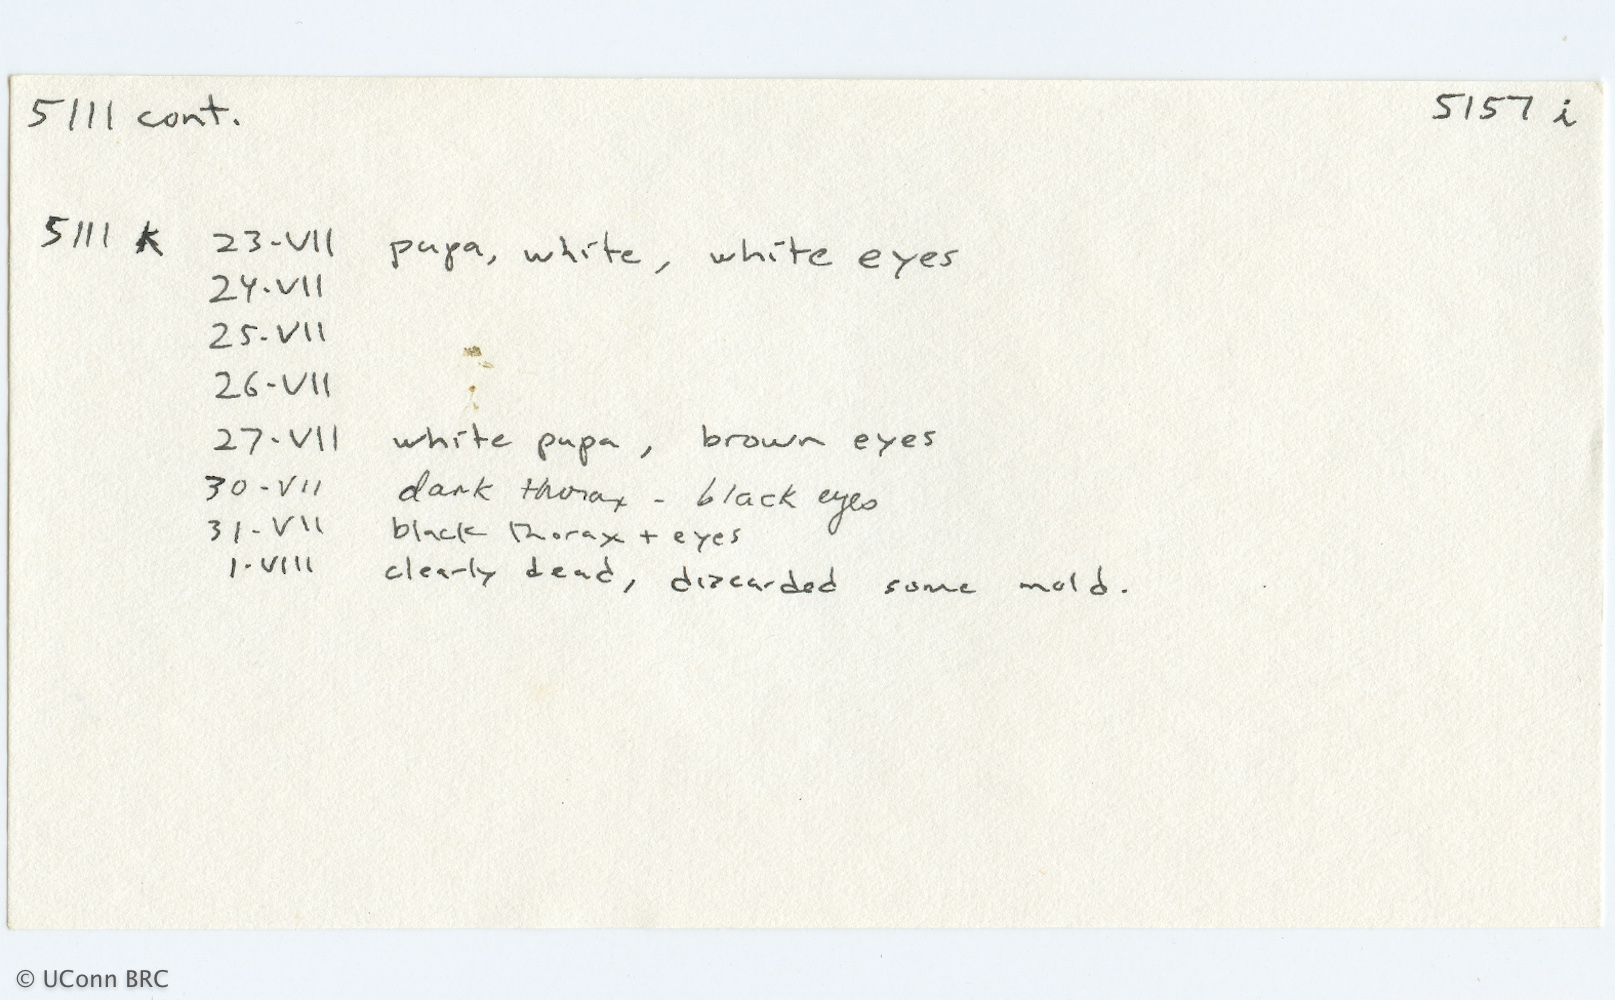 5111 cont.
5157 i
5111 K 23-VII pupa, white, white eyes
24-VII
25-VII
26-VII
27-VII white pupa, brown eyes
30-VII dark thorax - black eyes
31-VII black thorax + eyes
1-VIII clearly dead, discarded some mold.
© UConn BRC